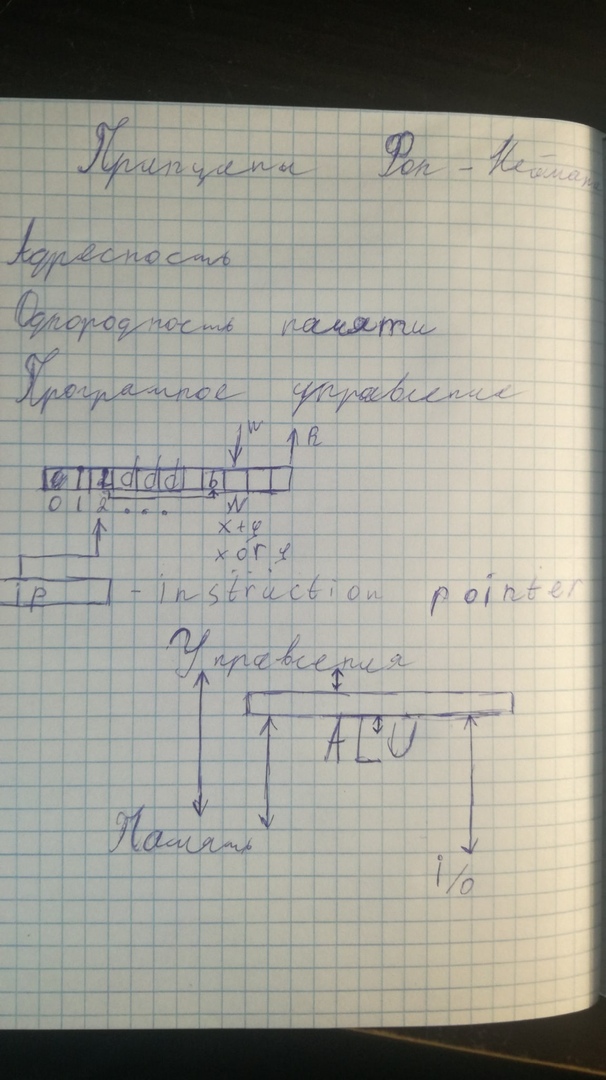 Принципы Фон-Неймана
Адресность
Однородность памяти
Програмное управление
W R
d d d b
0 1 2 ... N
x+y
x or y
ip - instruction pointer
Управления
ALU
Память
i/o